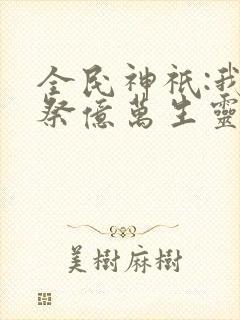 全民神祇:我
祭億萬生靈
美樹麻樹